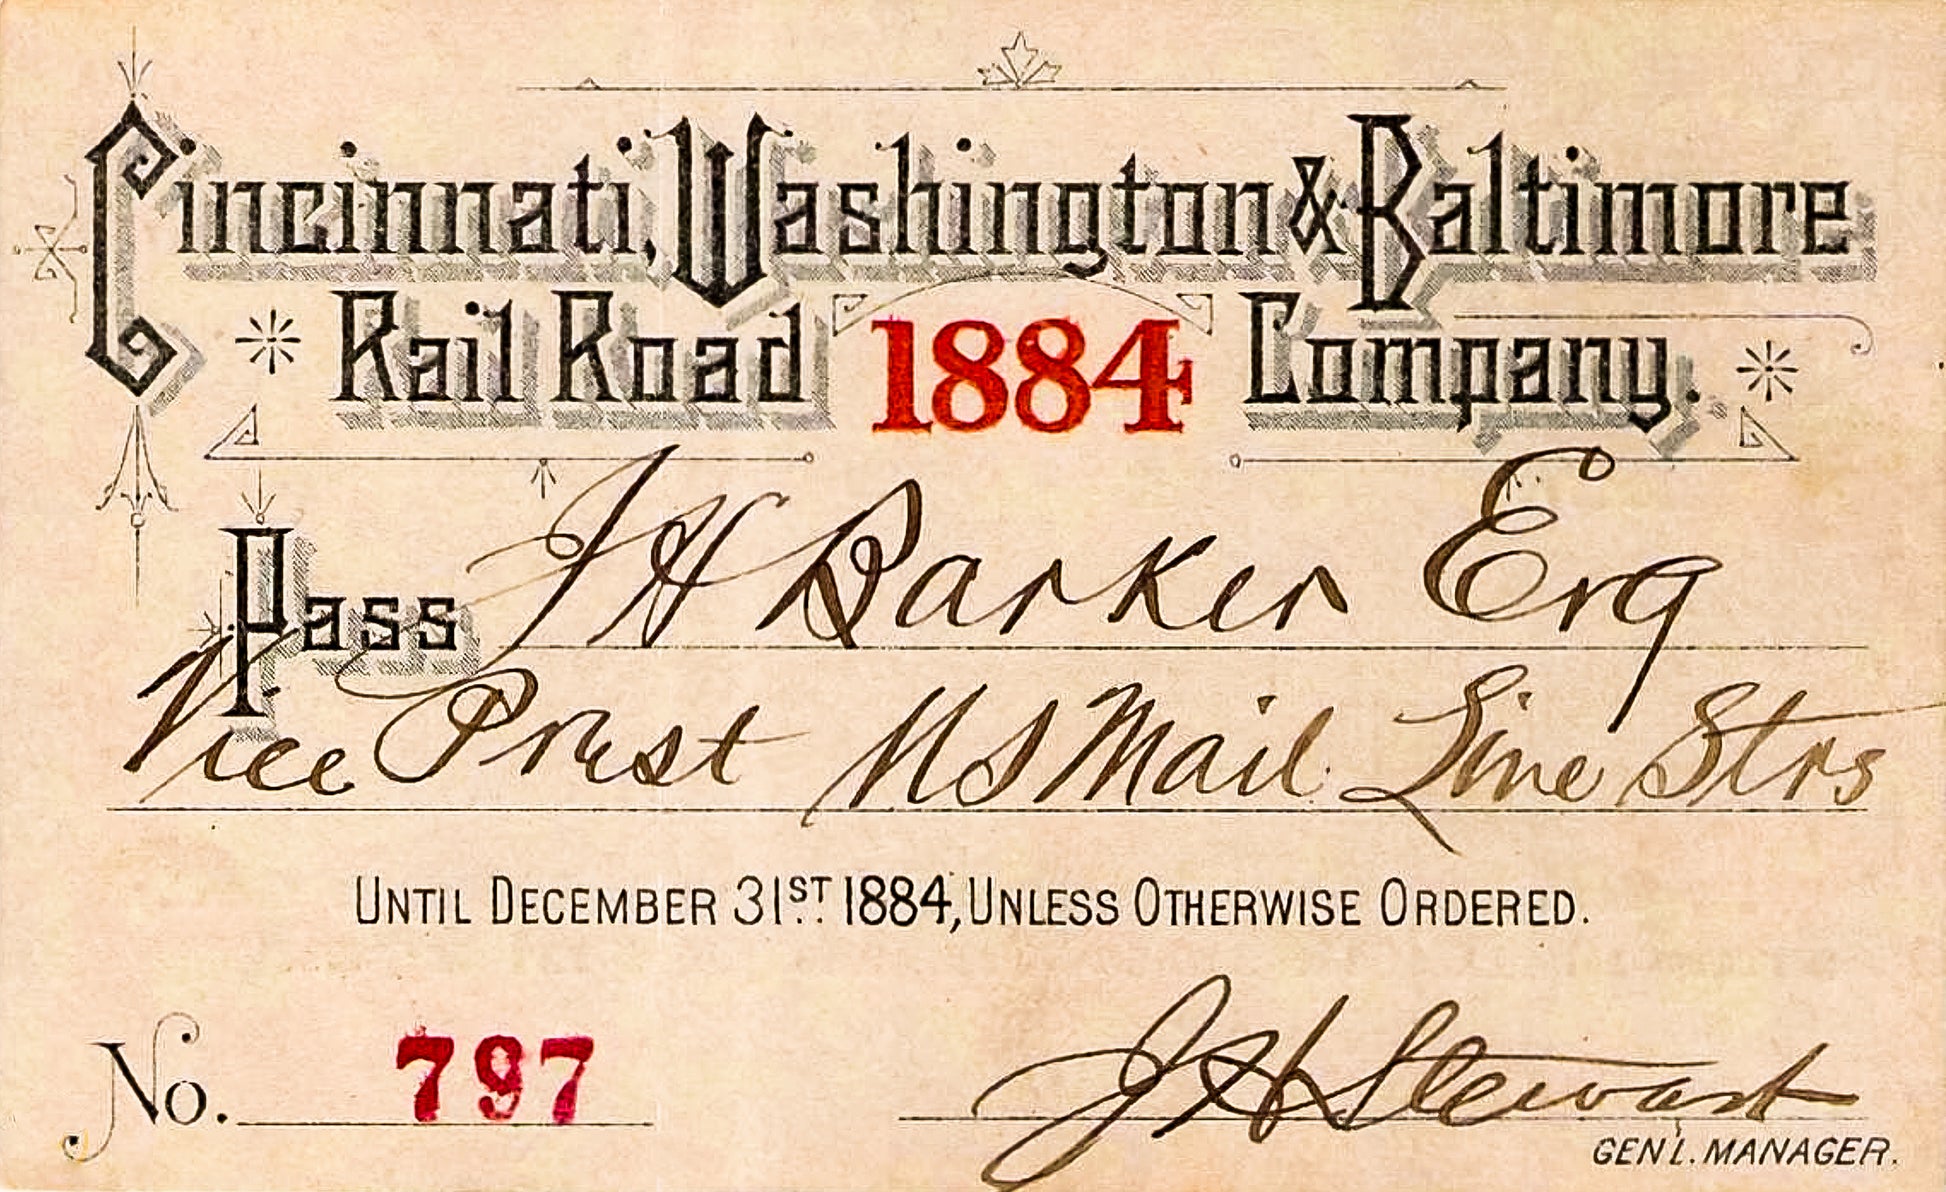 Cincinnati, Washington & Baltimore
Rail Road 1884 Company.
Pass J H Barker Esq
Vice Prest U S Mail Line Strs
UNTIL DECEMBER 31ST. 1884, UNLESS OTHERWISE ORDERED.
No. 797 J H Stewart
GEN'L. MANAGER.